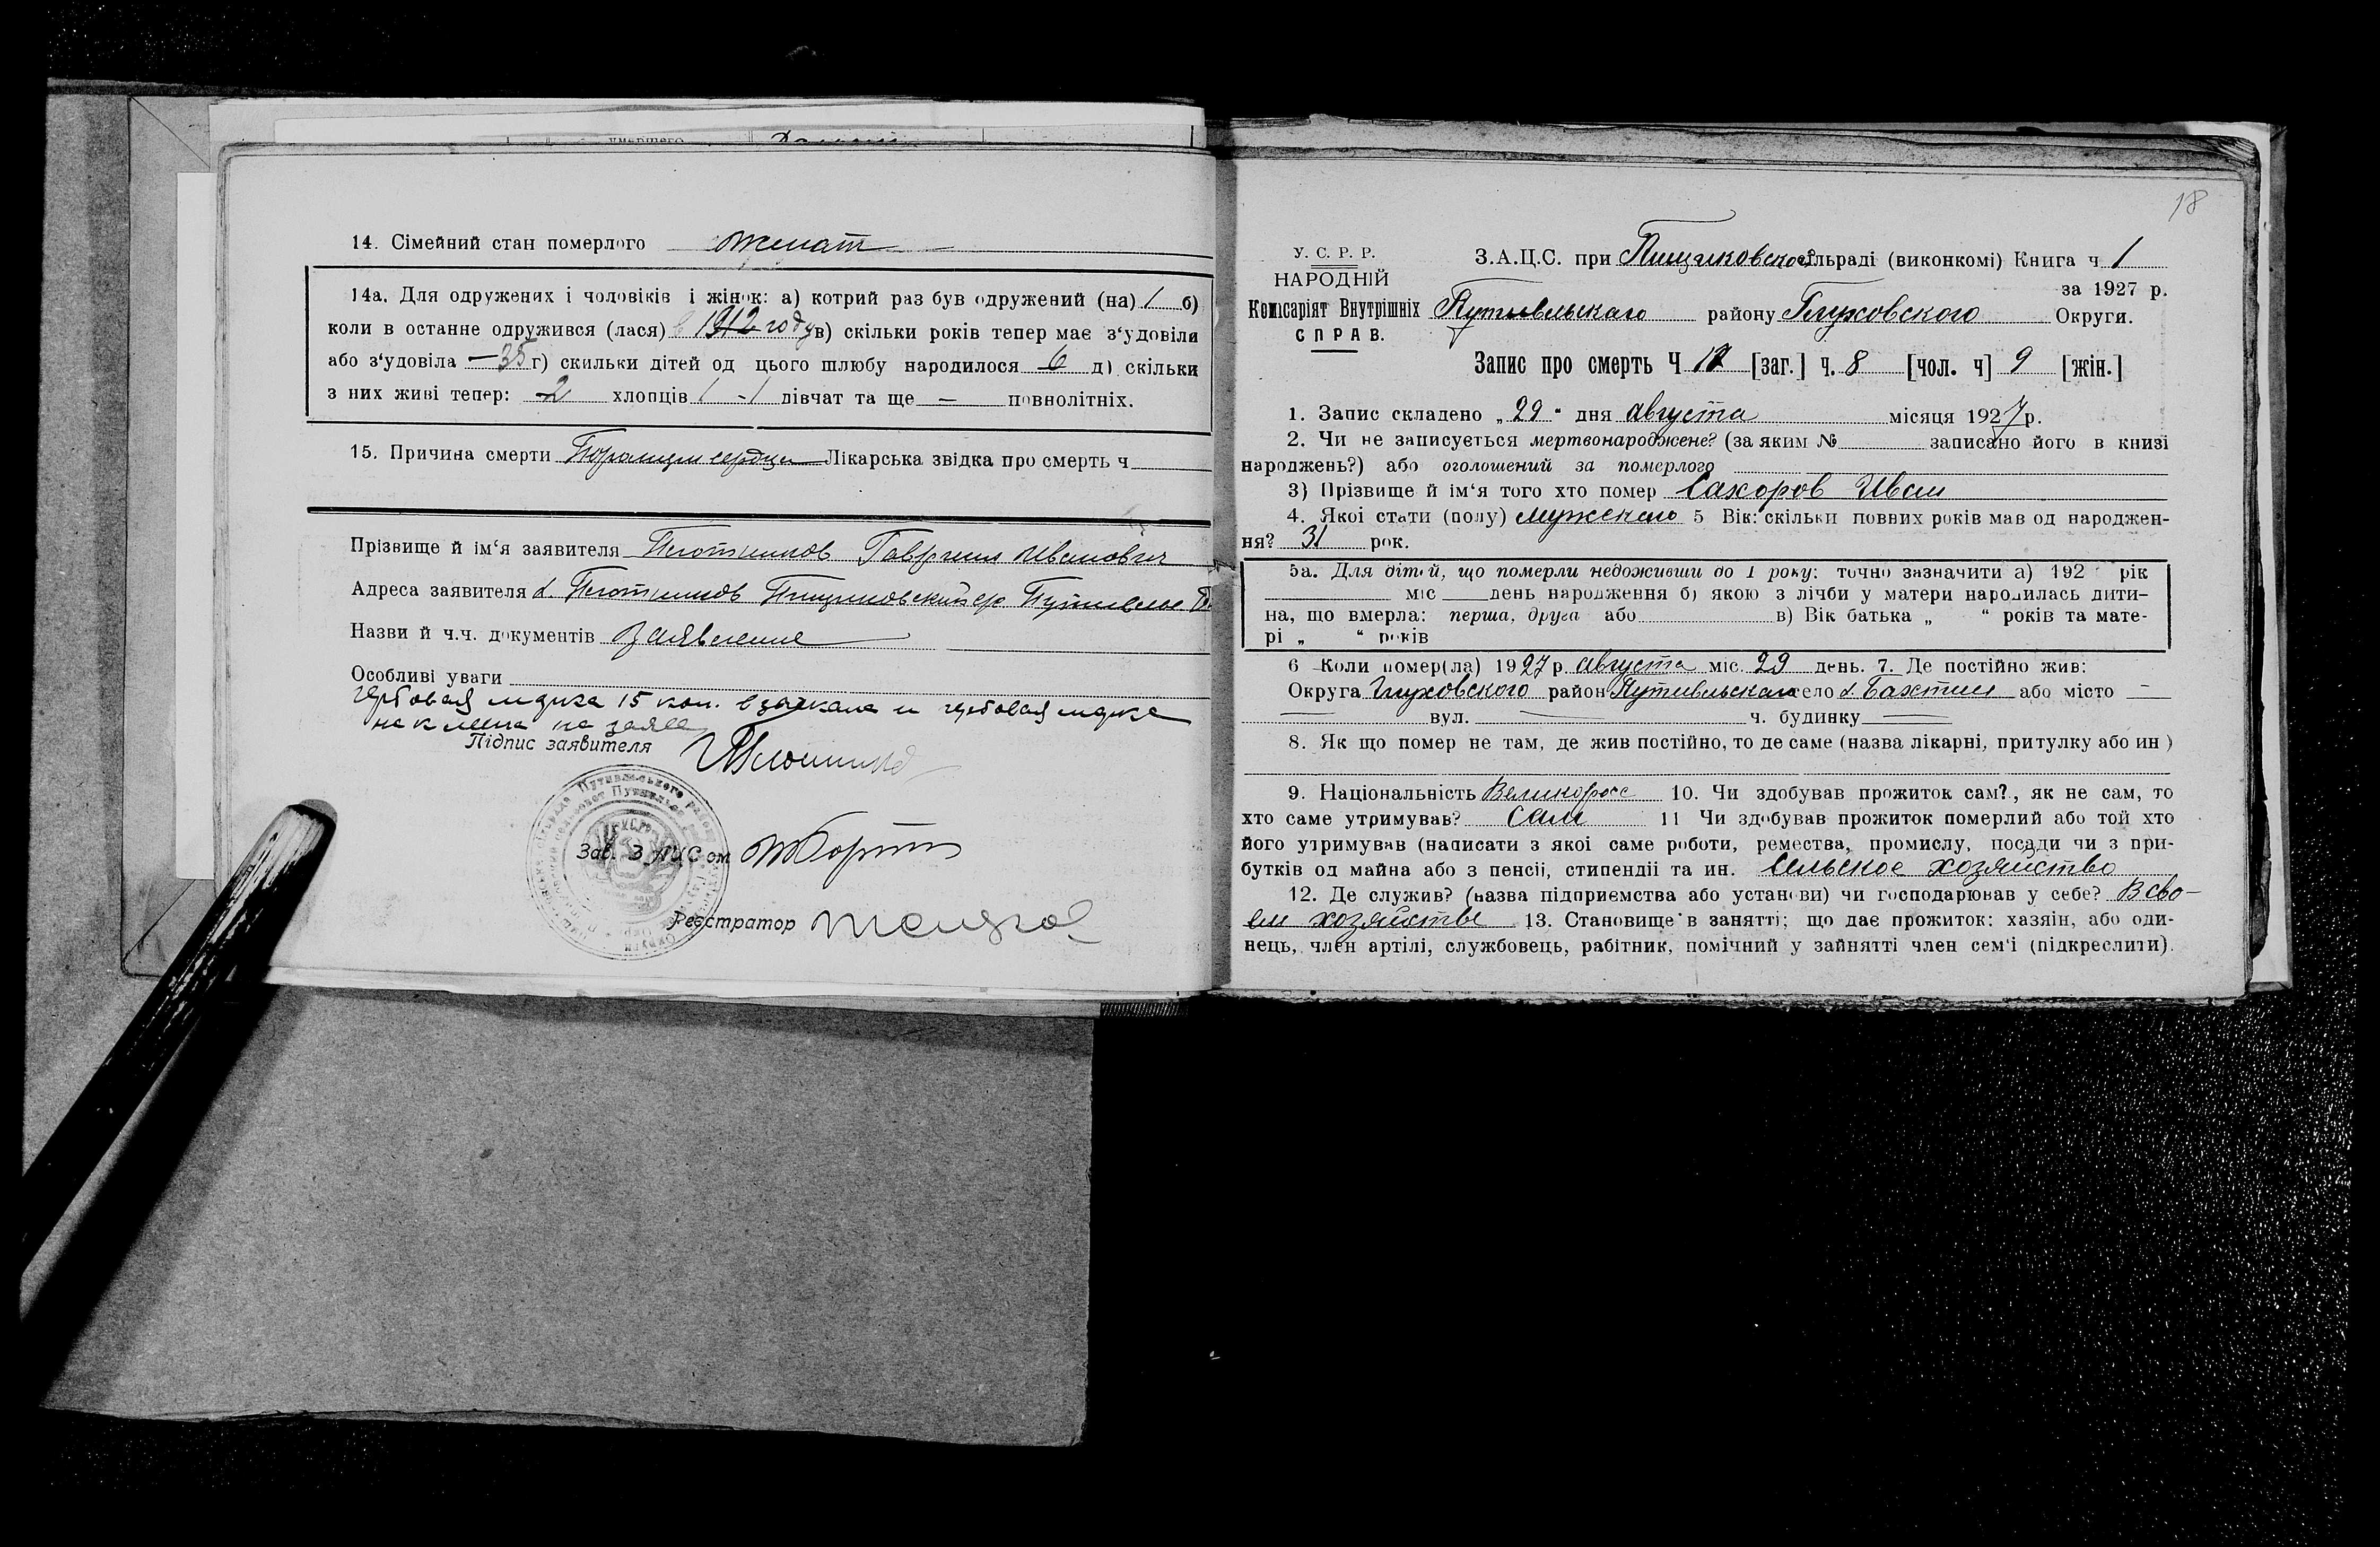 умершего
14. Сімейний стан померлого женат
14а. Для одружених і чоловіків і жінок: а) котрий раз був одружений (на) 1 б)
коли в останне одружився (лася) в 1912 году в) скільки років тепер має з‘удовіли
або з‘удовіла — 35 г) скильки дітей од цього шлюбу народилося 6 д) скільки
з них живі тепер: 2 хлопців 1 - 1 дівчат та ще — повнолітніх.
15. Причина смерти сердца Лікарська звідка про смерть ч
Прізвище й ім‘я заявителя Плотников Гавриил Иванович
Адреса заявителя д. Плотников Пищиковский с/р Путивльск
Назви й ч.ч. документів Заявление
Особливі уваги
гербовая марка 15 коп. взыскана и гербовая марка
наклеена на заяв
Підпис заявителя
Зав. ЗАГС‘ом
Реєстратор
18
У. С. Р. Р.
НАРОДНІЙ
Комісаріят Внутрішніх
СПРАВ.
З.А.Ц.С. при Пищиковской сільраді (виконкомі) Книга ч 1
за 1927 р.
Путивльскаго району Глуховского Округи.
Запис про смерть Ч 17 [заг.] ч. 8 [чол. ч] 9 [жін.]
1. Запис складено „ 29 “ дня августа місяця 1927 р.
2. Чи не записується мертвонароджене? (за яким № записано його в книзі
народжень?) або оголошений за померлого
3) Прізвище й ім‘я того хто помер Сахоров Иван
4. Якоі стати (полу) мужскаго 5 Вік: скільки повних років мав од народжен-
ня? 31 рок.
5а. Для дітей, що померли недоживши до 1 року: точно зазначити а) 192 рік
міс день народження б) якою з лічби у матери народилась дити-
на, що вмерла: перша, друга або в) Вік батька „ “ років та мате-
рі „ “ років
6 Коли помер(ла) 1927 р. августа міс. 29 день. 7. Де постійно жив:
Округа Глуховского район Путивльскаго село д. Бахтин або місто —
вул. ч. будинку
8. Як що помер не там, де жив постійно, то де саме (назва лікарні, притулку або ин )
9. Національність Великоросс 10. Чи здобував прожиток сам?, як не сам, то
хто саме утримував? Сам 11 Чи здобував прожиток померлий або той хто
його утримував (написати з якоі саме роботи, ремества, промислу, посади чи з при-
бутків од майна або з пенсіі, стипендіі та ин. Сельское хозяйство
12. Де служив? (назва підприемства або установи) чи господарював у себе? В сво-
ем хозяйстве 13. Становище в занятті; що дає прожиток: хазяін, або оди-
нець, член артілі, службовець, рабітник, помічний у зайнятті член сем‘і (підкреслити).